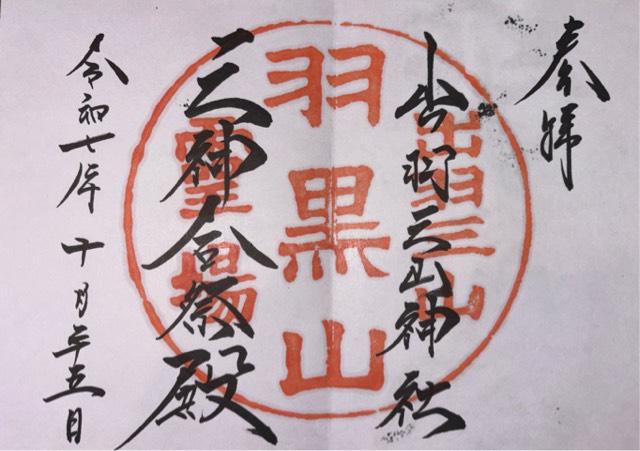 奉拝
出羽三山神社
出羽三山
羽黒山
三神合祭殿
霊場
令和七年十月廿五日